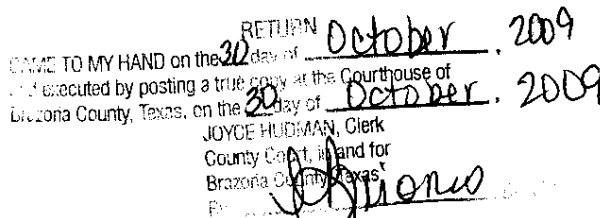 RETURN
CAME TO MY HAND on the 30 day of October, 2009
and executed by posting a true copy at the Courthouse of
Brazoria County, Texas, on the 30 day of October, 2009
JOYCE HUDMAN, Clerk
County Court, in and for
Brazoria County, Texas